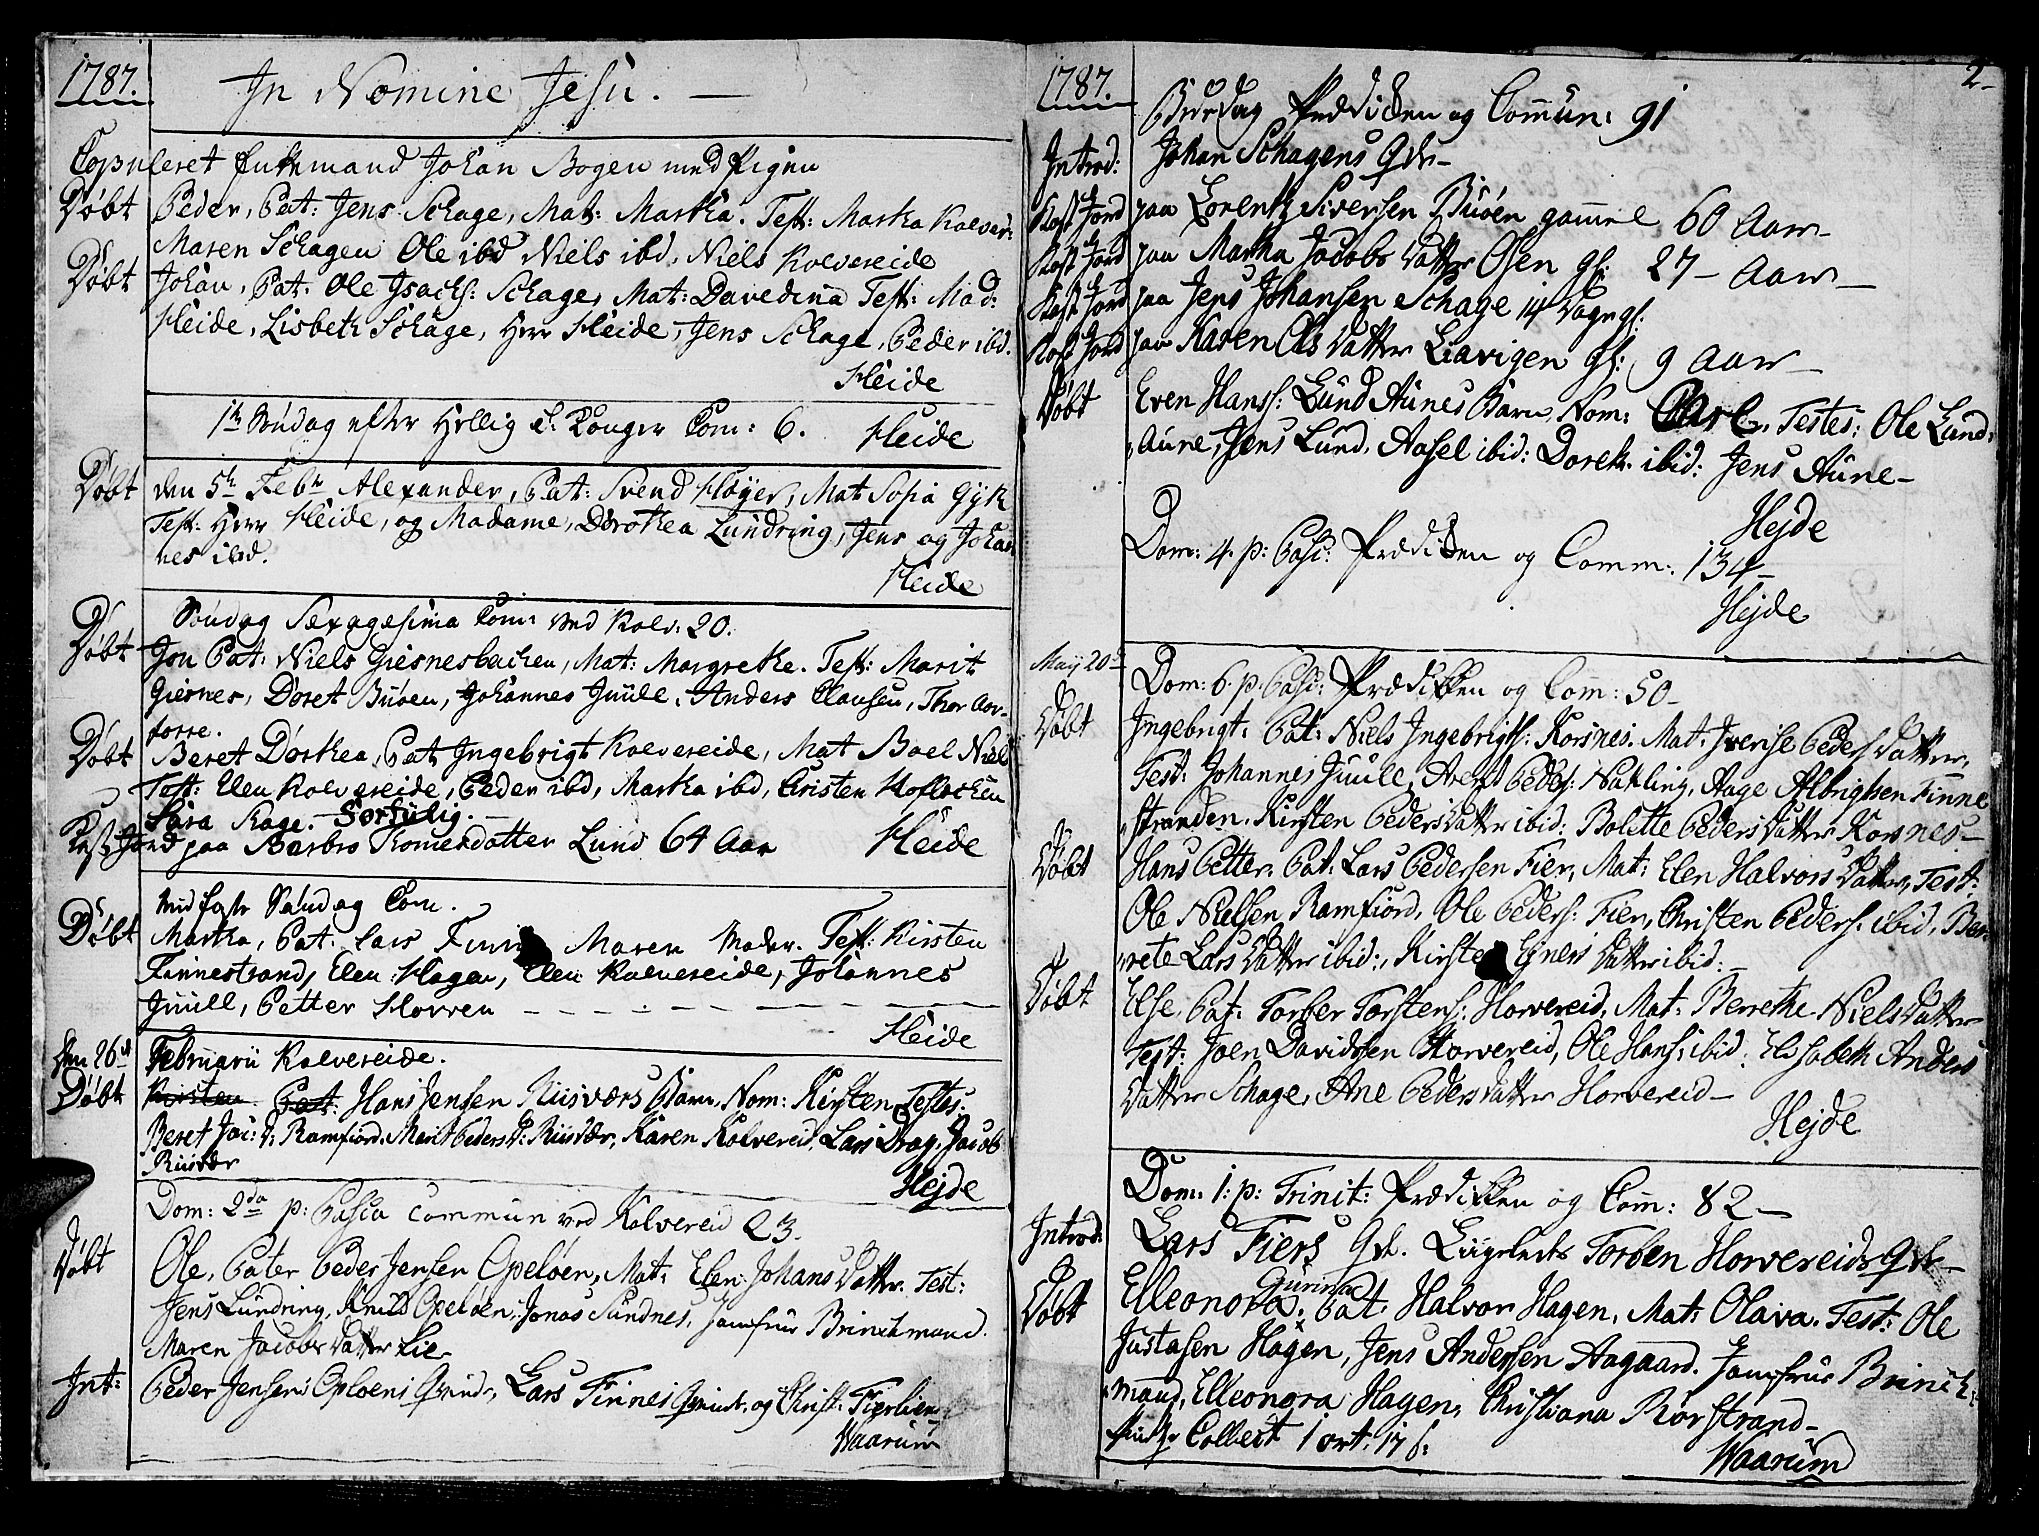 1787.
In Nomine Jesu. —
Copuleret Enkemand Johan Bogen med Pigen
Døbt Peder, Pat: Jens Schage, Mat: Martha. Test: Martha Kolver:
Maren Schagen Ole ibd Niels ibd, Niels Kolvereide
Døbt Johan, Pat: Ole Isachs: Schage, Mat: Davedina Test: Mad:
Heide, Lisbeth Schage, Herr Heide, Jens Schage, Peder ibd.
Heide
1te Søndag efter Hellig 3 Konger Com: 6. Heide
Døbt den 5te Febr Alexander, Pat: Svend Høyer, Mat Sofia Gyk
Test: Herr Heide, og Madame, Dorothea Lundring, Jens og Johan
nes ibd.
Heide
Søndag Sexagesima Com: ved Kolv: 20.
Døbt Jon Pat: Niels Giesnesbachen, Mat: Margrethe. Test: Marit
Giesnes, Doret Buøen, Johannes Juule, Anders Clausen, Thor Aor-
torre.
Døbt Beret Dorthea, Pat Ingebrigt Kolvereide, Mat Boel Niels
Test: Elen Kolvereide, Peder ibd, Martha ibd, Christen Hoflochen
Sara Kage.
Kast Jord paa Barbro Thomesdatter Lund 64 Aar Heide
Midfaste Søndag Com.
Døbt Martha, Pat: Lars Maren Moder. Test: Kirsten
Finnestrand, Elen Hagen, Elen Kolvereide, Johannes
Juull, Petter Horren
Heide
Den 26de Februarii Kolvereide.
Døbt Kirsten Pat: Hans Jensen Riisværs Barn, Nom: Kirsten Testes:
Beret Jac: D: Ramfiord, Marit Peders D: Riisvær, Karen Kolvereid, Lars Drag, Jacob
Riisvær
Hejde
Dom: 2da p: Pasca Commun ved Kolvereid 23.
Døbt Ole, Pater Peder Jensen Opeløen, Mat: Elen Johans Datter. Test:
Jens Lundring, Knud Opeløen, Jonas Sundnes, Jomfrue Brinchmand.
Maren Jacobs Datter Lie-
Int: Peder Jensens Oploens Qvinde, Lars Finnes Qvinde, og Christ: Fierlien
Waarum
1787. 2-
Buurdag Prædiken og Commun: 91
Introd: Johan Schagens Qde-
Kast Jord paa Lorentz Siversen Buøen gammel 60 Aar-
Kast Jord paa Martha Jacobs Datter Osen gl: 27- Aar-
Kast Jord paa Jens Johansen Schage 14 Dage gl:
Kast Jord paa Karen Ols Datter Liavigen gl: 9 Aar-
Døbt Even Hanss: Lund Aunes Barn, Nom: Carl. Testes: Ole Lund:
Aune, Jens Lund, Aasel ibid: Doreth: ibid: Jens Aune-
Hejde
Dom: 4. p: Pasc: Prædiken og Comm: 134-
Hejde
Maij 20de Dom: 6. p. Pasc: Prædikken og Com: 50-
Døbt Ingebrigt: Pat: Niels Ingebrigts: Korsnes. Mat: Pedersdatter,
Test: Johannes Juull, Arent Peders: Nakling, Aage Albrigtsen Finne
stranden. Kirsten Peders Datter ibid: Bolette Peders Datter Korsnes-
Døbt Hans Petter, Pat: Lars Pedersen Fier, Mat: Elen Halvors Datter, Test:
Ole Nielsen Ramfiord, Ole Peders: Fier, Christen Peders: ibid, Ber:
rete Lars Datter ibid:, Kirsten Datter ibid:-
Døbt Else, Pat: Torber Torstens: Horvereid, Mat: Berrethe Niels Datter
Test: Joen Davidsen Horvereid, Ole Hans: ibid: Elisabeth Anders
Datter Schage, Ane Peders Datter Horvereid-
Hejde
Dom: 1: p: Trinit: Prædikken og Com: 82-
Introd: Lars Fiers Qde. Torben Horvereids Qde-
Døbt Elleonora Gunina: Pat: Halvor Hagen, Mat: Olava. Test: Ole
Justasen Hagen, Jens Andersen Aagaard. Jomfrue Brinch:
mand, Elleonora Hagen, Christiana Rorstrand-
Collect 1 ort. 17 s:
Waarum